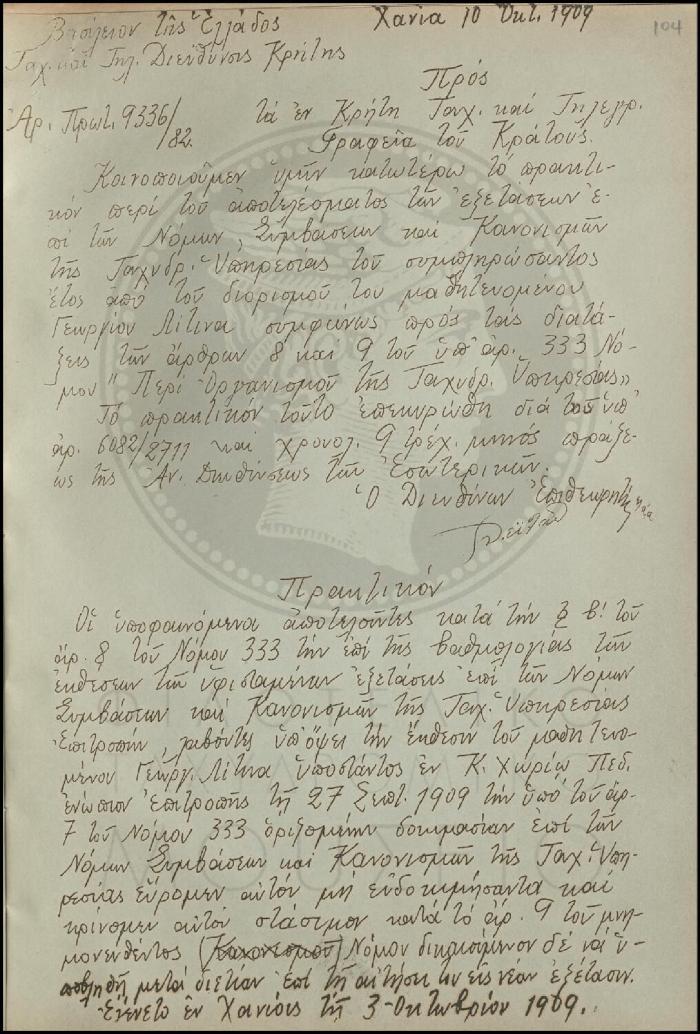 Βασίλειον τῆς Ἑλλάδος Χανία 10 Ὀκτ. 1909
104
Ταχ. καὶ Τηλ. Διεύθυνσις Κρήτης
Πρός
Ἀρ. Πρωτ. 9336/82. τὰ ἐν Κρήτῃ Ταχ. καὶ Τηλεγρ.
Γραφεῖα τοῦ Κράτους.
Κοινοποιοῦμεν ὑμῖν κατωτέρω τὸ πρακτι-
κὸν περὶ τοῦ ἀποτελέσματος τῶν ἐξετάσεων ἐ-
πὶ τῶν Νόμων, Συμβάσεων καὶ Κανονισμῶν
τῆς Ταχυδρ. Ὑπηρεσίας τοῦ συμπληρώσαντος
ἔτος ἀπὸ τοῦ διορισμοῦ του μαθητευομένου
Γεωργίου Λίτινα συμφώνως πρὸς τὰς διατά-
ξεις τῶν ἄρθρων 8 καὶ 9 τοῦ ὑπ' ἀρ. 333 Νό-
μου "Περὶ Ὀργανισμοῦ τῆς Ταχυδρ. Ὑπηρεσίας"
Τὸ πρακτικὸν τοῦτο ἐπεκυρώθη διὰ τῆς ὑπ'
ἀρ. 6082/2711 καὶ χρονολ. 9 τρέχ. μηνὸς πράξε-
ως τῆς Ἀν. Διευθύνσεως τῶν Ἐσωτερικῶν.
Ὁ Διευθύνων Ἐπιθεωρητής
Πρακτικόν
Οἱ ὑποφαινόμενοι ἀποτελοῦντες κατὰ τὴν § β! τοῦ
ἀρ. 8 τοῦ Νόμου 333 τὴν ἐπὶ τῆς βαθμολογίας τῶν
ἐκθέσεων τῶν ὑφισταμένων ἐξετάσεις ἐπὶ τῶν Νόμων
Συμβάσεων καὶ Κανονισμῶν τῆς Ταχ. Ὑπηρεσίας
Ἐπιτροπήν, λαβόντες ὑπ' ὄψει τὴν ἔκθεσιν τοῦ μαθητευο-
μένου Γεωργ. Λίτινα ὑποστάντος ἐν Κ. Χωρίῳ Πεδ.
ἐνώπιον Ἐπιτροπῆς τῇ 27 Σεπτ. 1909 τὴν ὑπὸ τοῦ ἀρ-
7 τοῦ Νόμου 333 ὁριζομένην δοκιμασίαν ἐπὶ τῶν
Νόμων Συμβάσεων καὶ Κανονισμῶν τῆς Ταχ. Ὑπη-
ρεσίας εὕρομεν αὐτὸν μὴ εὐδοκιμήσαντα καὶ
κρίνομεν αὐτὸν στάσιμον κατὰ τὸ ἀρ. 9 τοῦ μνη-
μονευθέντος (Κανονισμοῦ) Νόμου δικαιούμενον δὲ νὰ ὑ-
ποβληθῇ μετὰ διετίαν ἐπὶ τῇ αἰτήσει του εἰς νέαν ἐξέτασιν.
Ἐγένετο ἐν Χανίοις τῇ 3 Ὀκτωβρίου 1909.